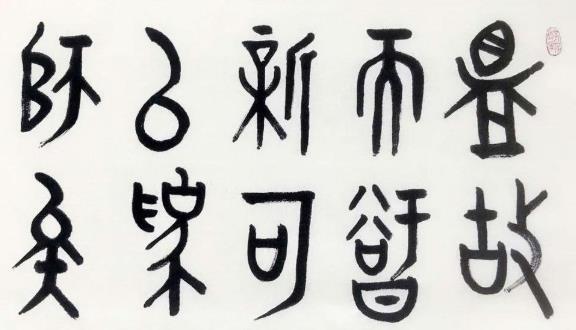 昷故
而智
新可
以為
師矣